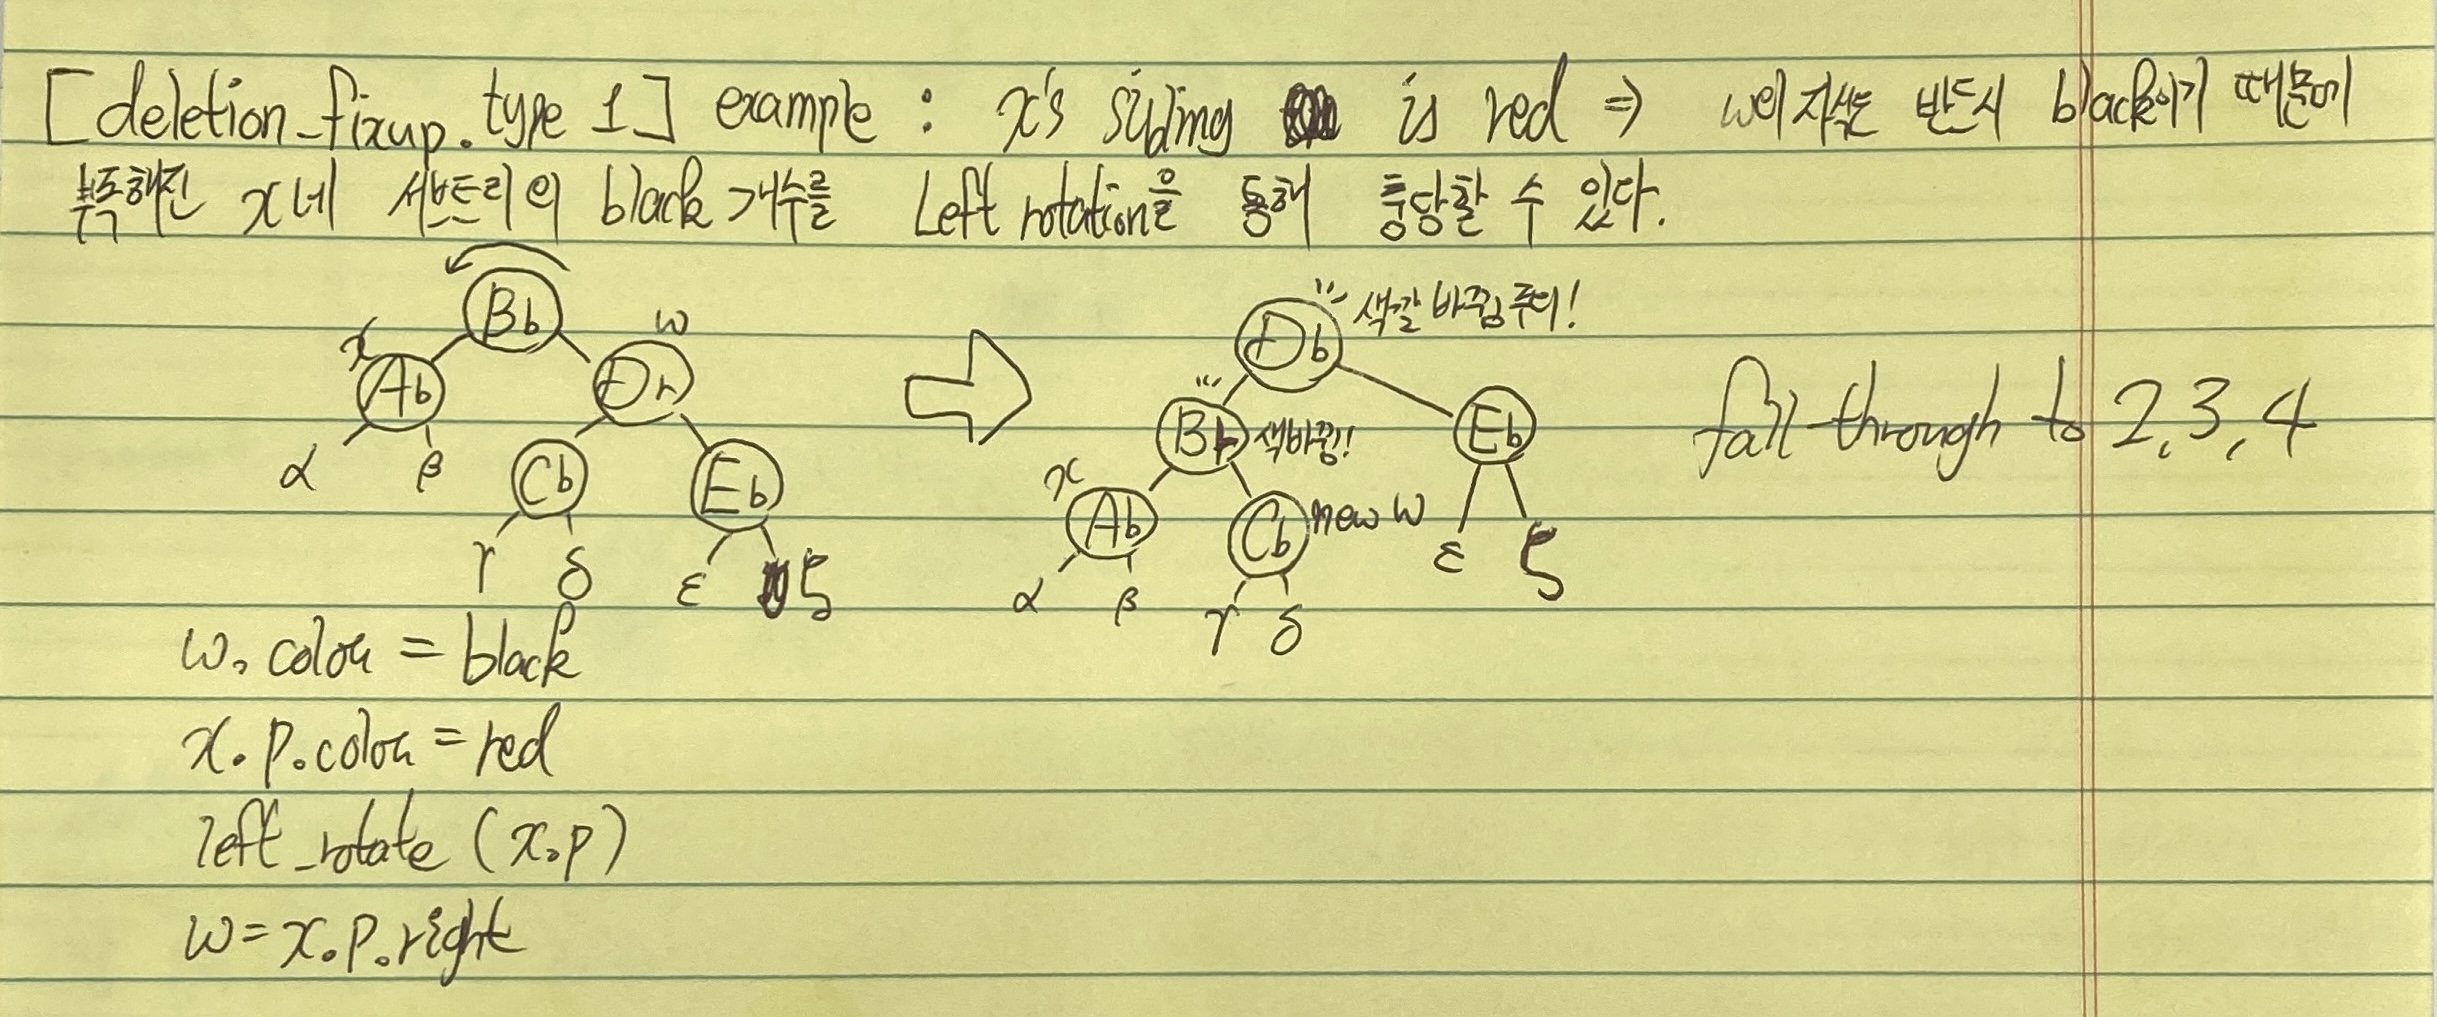 [deletion_fixup. type 1] example : x's sibling is red ⇒ w의 자식은 반드시 black이기 때문에
부족해진 x네 서브트리의 black 개수를 Left rotation을 통해 충당할 수 있다.
Bb
x
w
Ab
Dr
α
β
Cb
Eb
γ
δ
ε
ζ
Db
색깔 바뀜 주의!
Br
색바뀜!
Eb
x
Ab
Cb
new w
ε
ζ
α
β
γ
δ
fall through to 2, 3, 4
w.color = black
x.p.color = red
left_rotate (x.p)
w = x.p.right